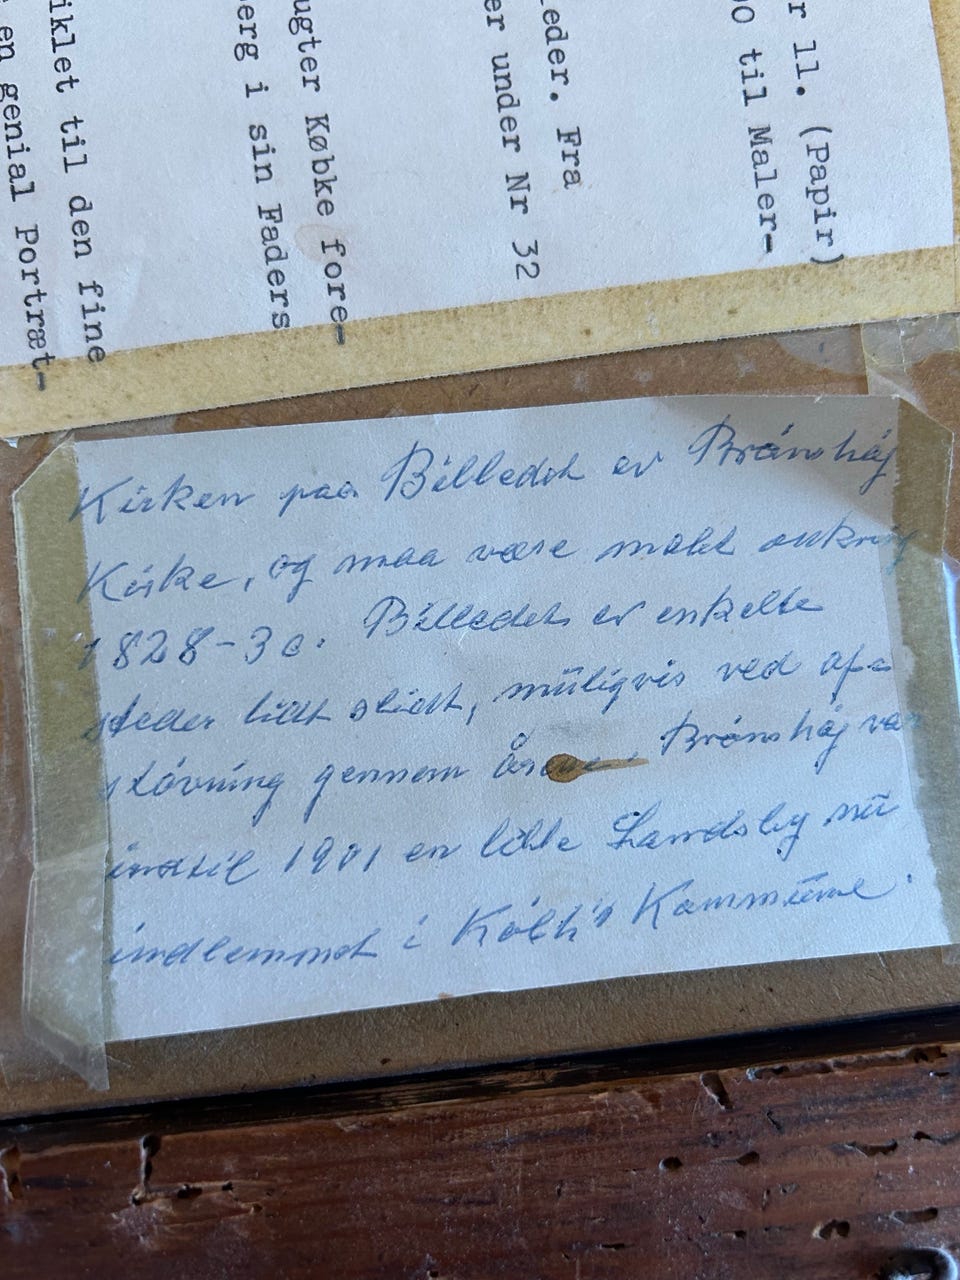 r 11. (Papir)
00 til Maler-
eder. Fra
er under Nr 32
ugter Købke fore-
berg i sin Faders
iklet til den fine
en genial Portræt-
Kirken paa Billedet er Brønshøj
Kirke, og maa være malet omkring
1828-30. Billedet er enkelte
steder lidt slidt, muligvis ved af=
støvning gennem årene. Brønshøj var
indtil 1901 en lille Landsby nu
indlemmet i Kbh's Kommune.